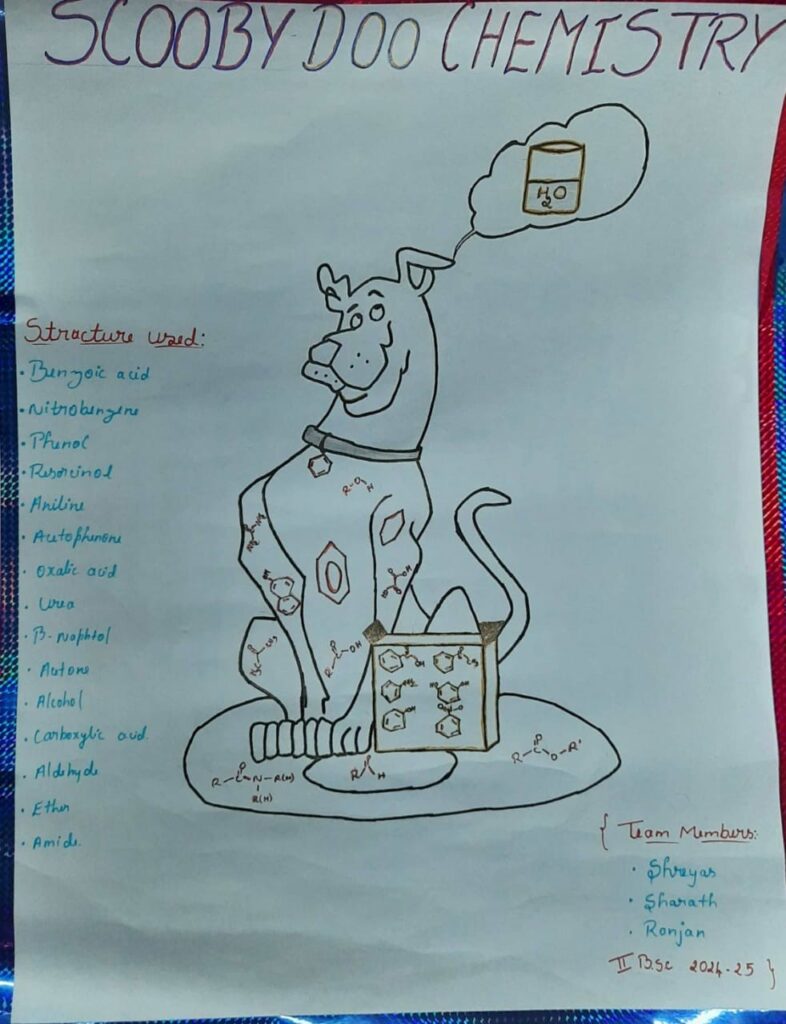 SCOOBY DOO CHEMISTRY
H2O
Structure used:
• Benzoic acid
• Nitrobenzene
• Phenol
• Resorcinol
• Aniline
• Acetophenone
• Oxalic acid
• Urea
• B-Naphtol
• Acetone
• Alcohol
• Carboxylic acid
• Aldehyde
• Ether
• Amide
R-O-H
R-C-OH
R-C-N-R(H)
R(H)
R H
R-C-O-R'
{ Team Members:
• Shreyas
• Sharath
• Ronjan
II B.Sc 2024-25 }